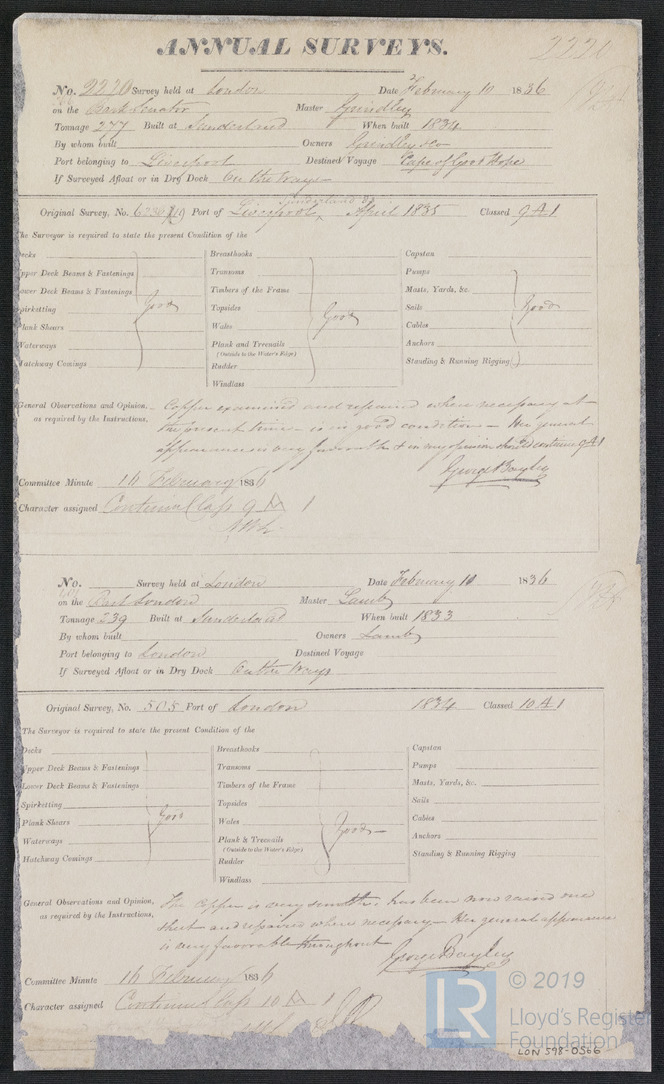 ANNUAL SURVEYS.
2220
No. 2220 Survey held at London Date February 10 1836
on the Bark Senator Master Grindley
Tonnage 277 Built at Sunderland When built 1834
By whom built Owners Grindley & Co
Port belonging to Liverpool Destined Voyage Cape of Good Hope
If Surveyed Afloat or in Dry Dock On the Ways
Original Survey, No. Port of Liverpool April 1835 Classed 9 A 1
The Surveyor is required to state the present Condition of the
Decks
Upper Deck Beams & Fastenings
Lower Deck Beams & Fastenings
Spirketting
Plank Shears
Waterways
Hatchway Comings
Good
Breasthooks
Transoms
Timbers of the Frame
Topsides
Wales
Plank and Treenails
(Outside to the Water's Edge)
Rudder
Windlass
Good
Capstan
Pumps
Masts, Yards, &c.
Sails
Cables
Anchors
Standing & Running Rigging
Good
General Observations and Opinion, Copper examined and repaired where necessary at
as required by the Instructions, the present time is in good condition - Her general
appearance is very favorable & in my opinion should continue 9 A 1
George Bayley
Committee Minute 16 February 1836
Character assigned Continued Cap 9 A 1
No. Survey held at London Date February 10 1836
on the Bark London Master Lamb
Tonnage 239 Built at Sunderland When built 1833
By whom built Owners Lamb
Port belonging to London Destined Voyage
If Surveyed Afloat or in Dry Dock On the Ways
Original Survey, No. 505 Port of London 1834 Classed 10 A 1
The Surveyor is required to state the present Condition of the
Decks
Upper Deck Beams & Fastenings
Lower Deck Beams & Fastenings
Spirketting
Plank Shears
Waterways
Hatchway Comings
Good
Breasthooks
Transoms
Timbers of the Frame
Topsides
Wales
Plank & Treenails
(Outside to the Water's Edge)
Rudder
Windlass
Good
Capstan
Pumps
Masts, Yards, &c.
Sails
Cables
Anchors
Standing & Running Rigging
General Observations and Opinion, The Copper is very has been now raised one
as required by the Instructions, sheet and repaired where necessary - Her general appearance
is very favorable throughout
George Bayley
Committee Minute 16 February 1836
Character assigned Continued Cap 10 A 1
© 2019
LR
Lloyd's Register
Foundation
LON 598-0566